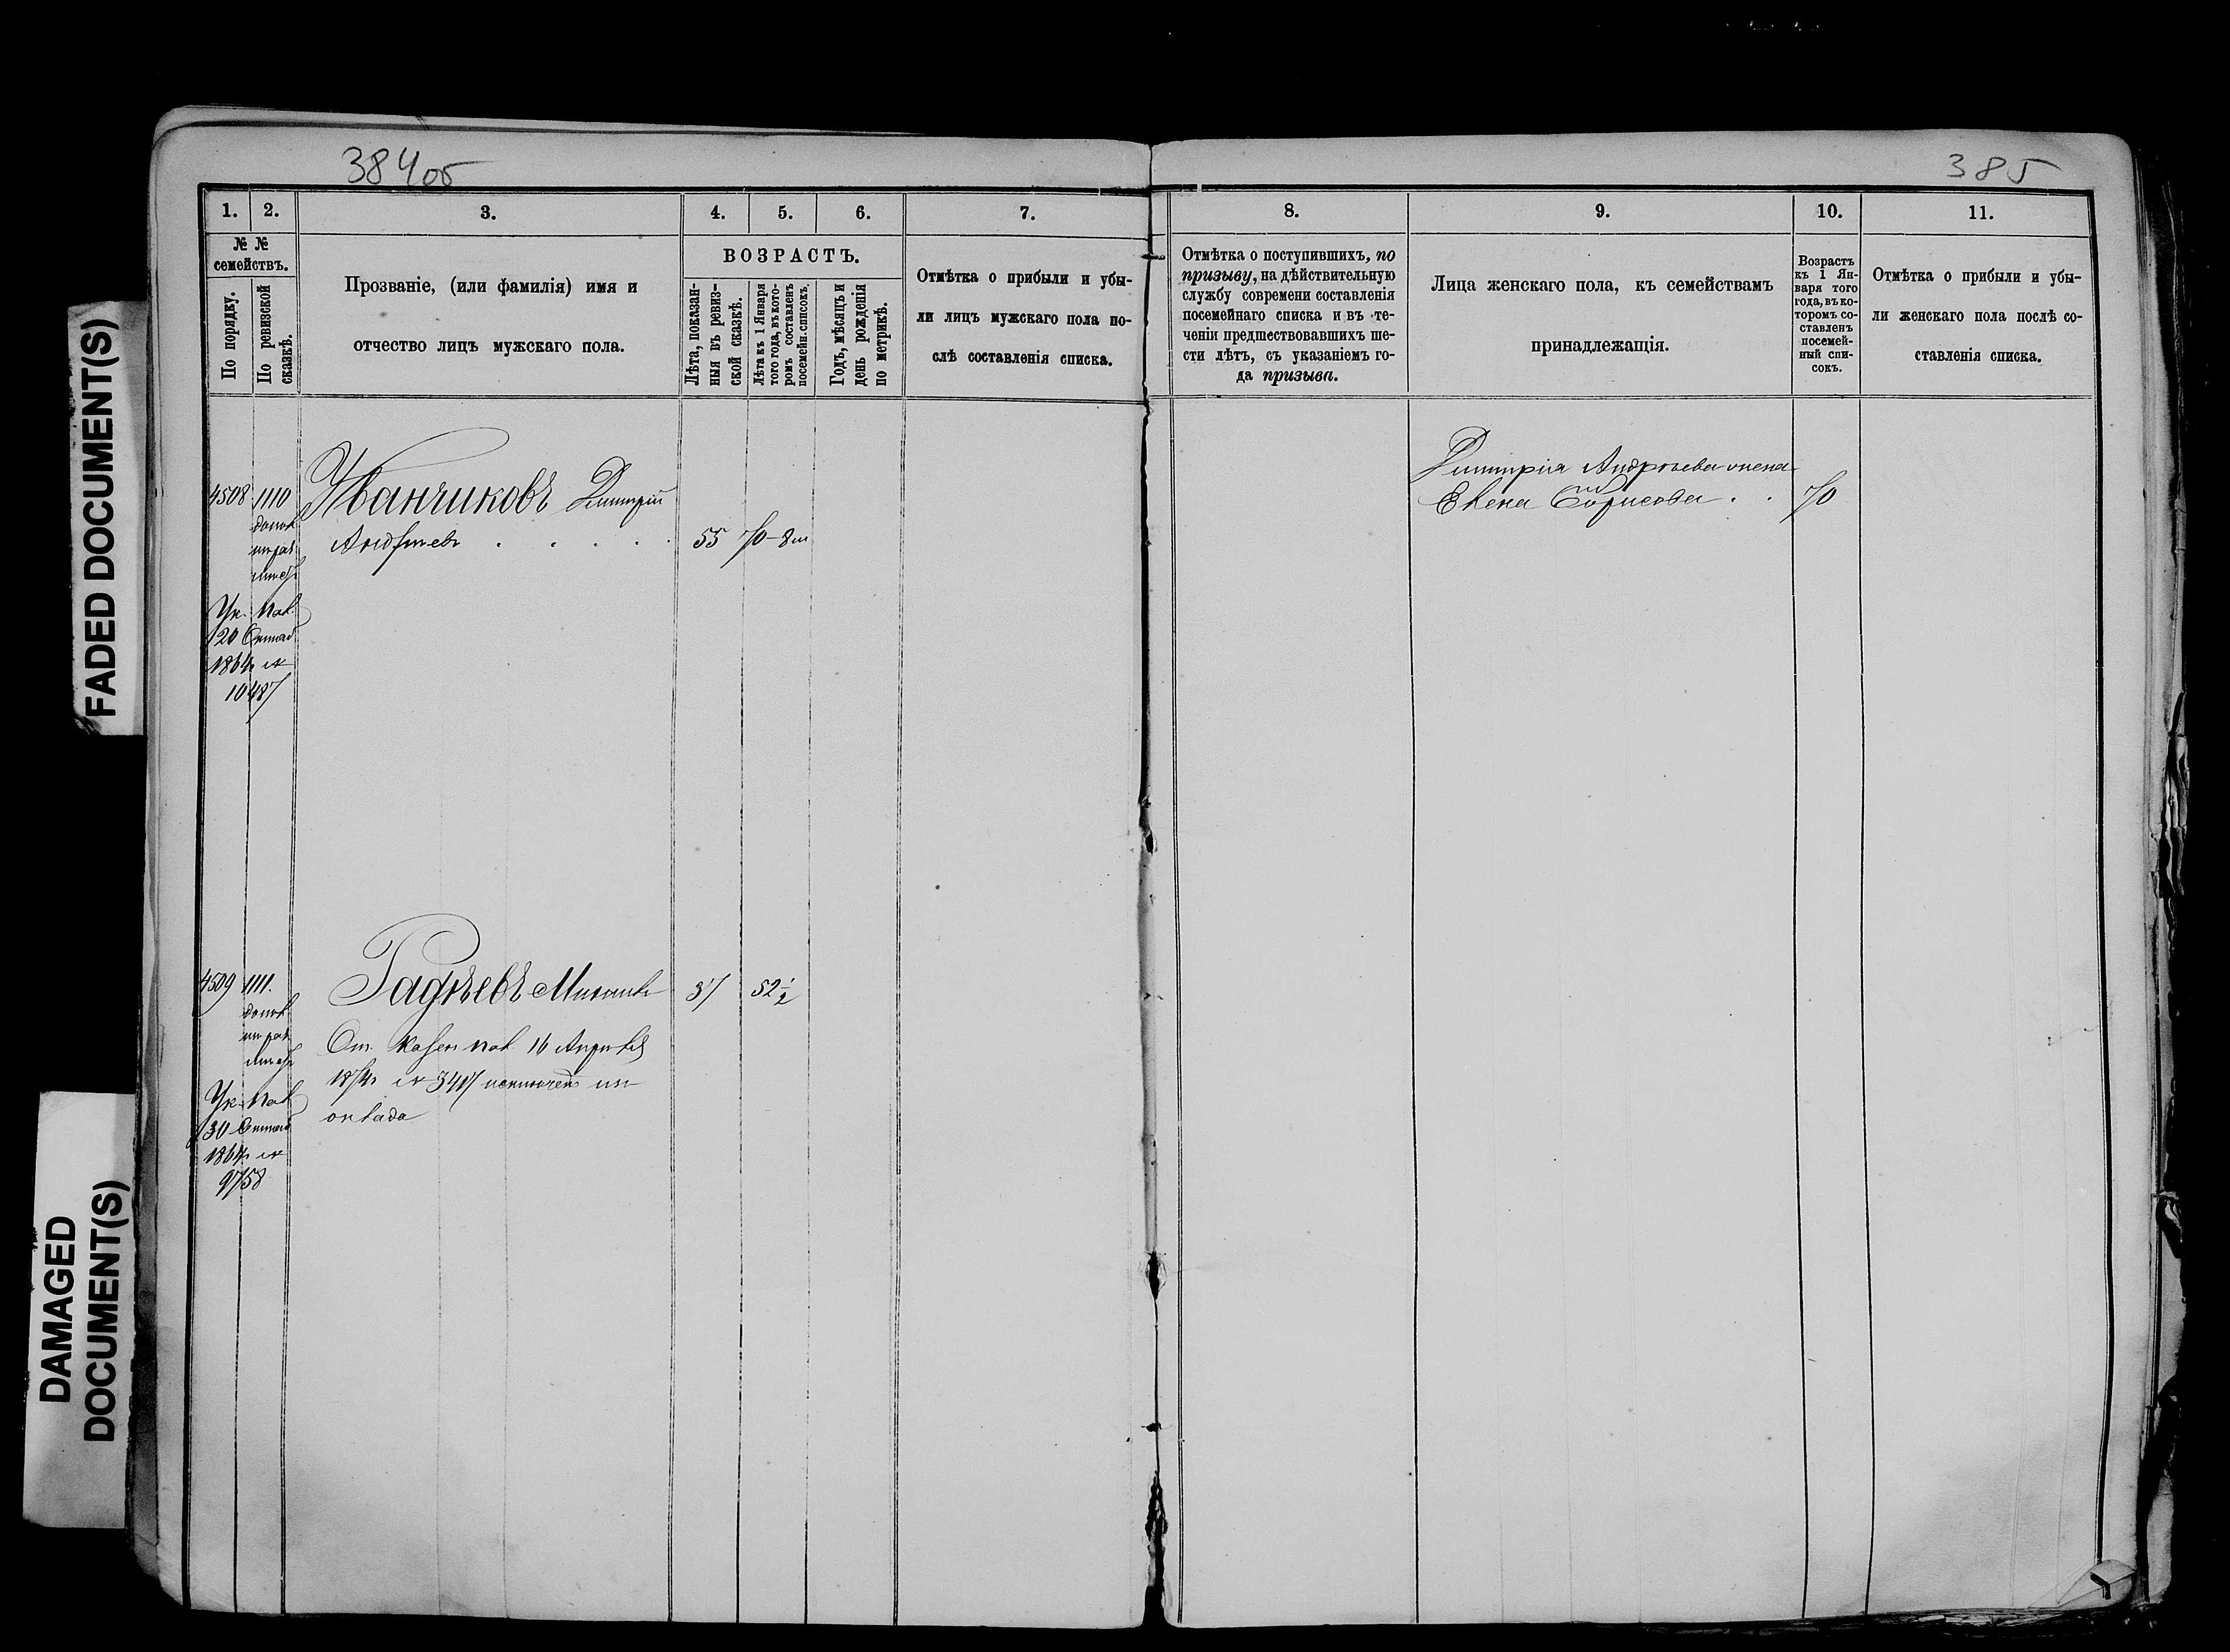 FADED DOCUMENT(S)
DAMAGED
DOCUMENT(S)
384об
385
1. 2. 3. 4. 5. 6. 7.
№ №
семействъ.
По порядку.
По ревизской
сказкѣ.
Прозваніе, (или фамилія) имя и
отчество лицъ мужскаго пола.
ВОЗРАСТЪ.
Лѣта, показан-
ныя въ ревиз-
ской сказкѣ.
Лѣта къ 1 Января
того года, въ кото-
ромъ составленъ
посемейн. списокъ.
Годъ, мѣсяцъ и
день рожденія
по метрикѣ.
Отмѣтка о прибыли и убы-
ли лицъ мужскаго пола по-
слѣ составленія списка.
8. 9. 10. 11.
Отмѣтка о поступившихъ, по
призыву, на дѣйствительную
службу современи составленія
посемейнаго списка и въ те-
ченіи предшествовавшихъ ше-
сти лѣтъ, съ указаніемъ го-
да призыва.
Лица женскаго пола, къ семействамъ
принадлежащія.
Возрастъ
къ 1 Ян-
варя того
года, въ ко-
торомъ со-
ставленъ
посемей-
ный спи-
сокъ.
Отмѣтка о прибыли и убы-
ли женскаго пола послѣ со-
ставленія списка.
4508 1110 Иванчиковъ Дмитрій
Андреевъ . . . . . 55 70
Ук. Пал.
20
1864г №
10487
Дмитрія Андреева жена
Елена Борисова . . 70
4509 1111. Гадѣевъ Михаилъ 37 52½
Ук. Пал
30
1864г №
9758
От. Казен Пал. 16 Апрѣля
1874г № 3417 исключенъ изъ
оклада